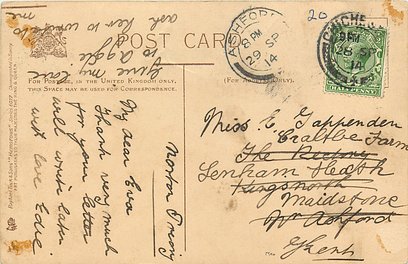 Give my love
to Aggie
ask her to write to
me
POST CARD
FOR POSTAGE IN THE UNITED KINGDOM ONLY,
THIS SPACE MAY BE USED FOR CORRESPONDENCE.
Norton Priory
My dear Eva
Thank very much
for your letter
will write later
with love Edie.
ASHFORD
8 PM
29 SP
14
20
CHICHESTER
9 PM
26 SP
14
HALFPENNY
Miss E. Tappenden
Farm
The Rectory
Lenham Heath
Kingsnorth
Maidstone
Nr Ashford
Kent